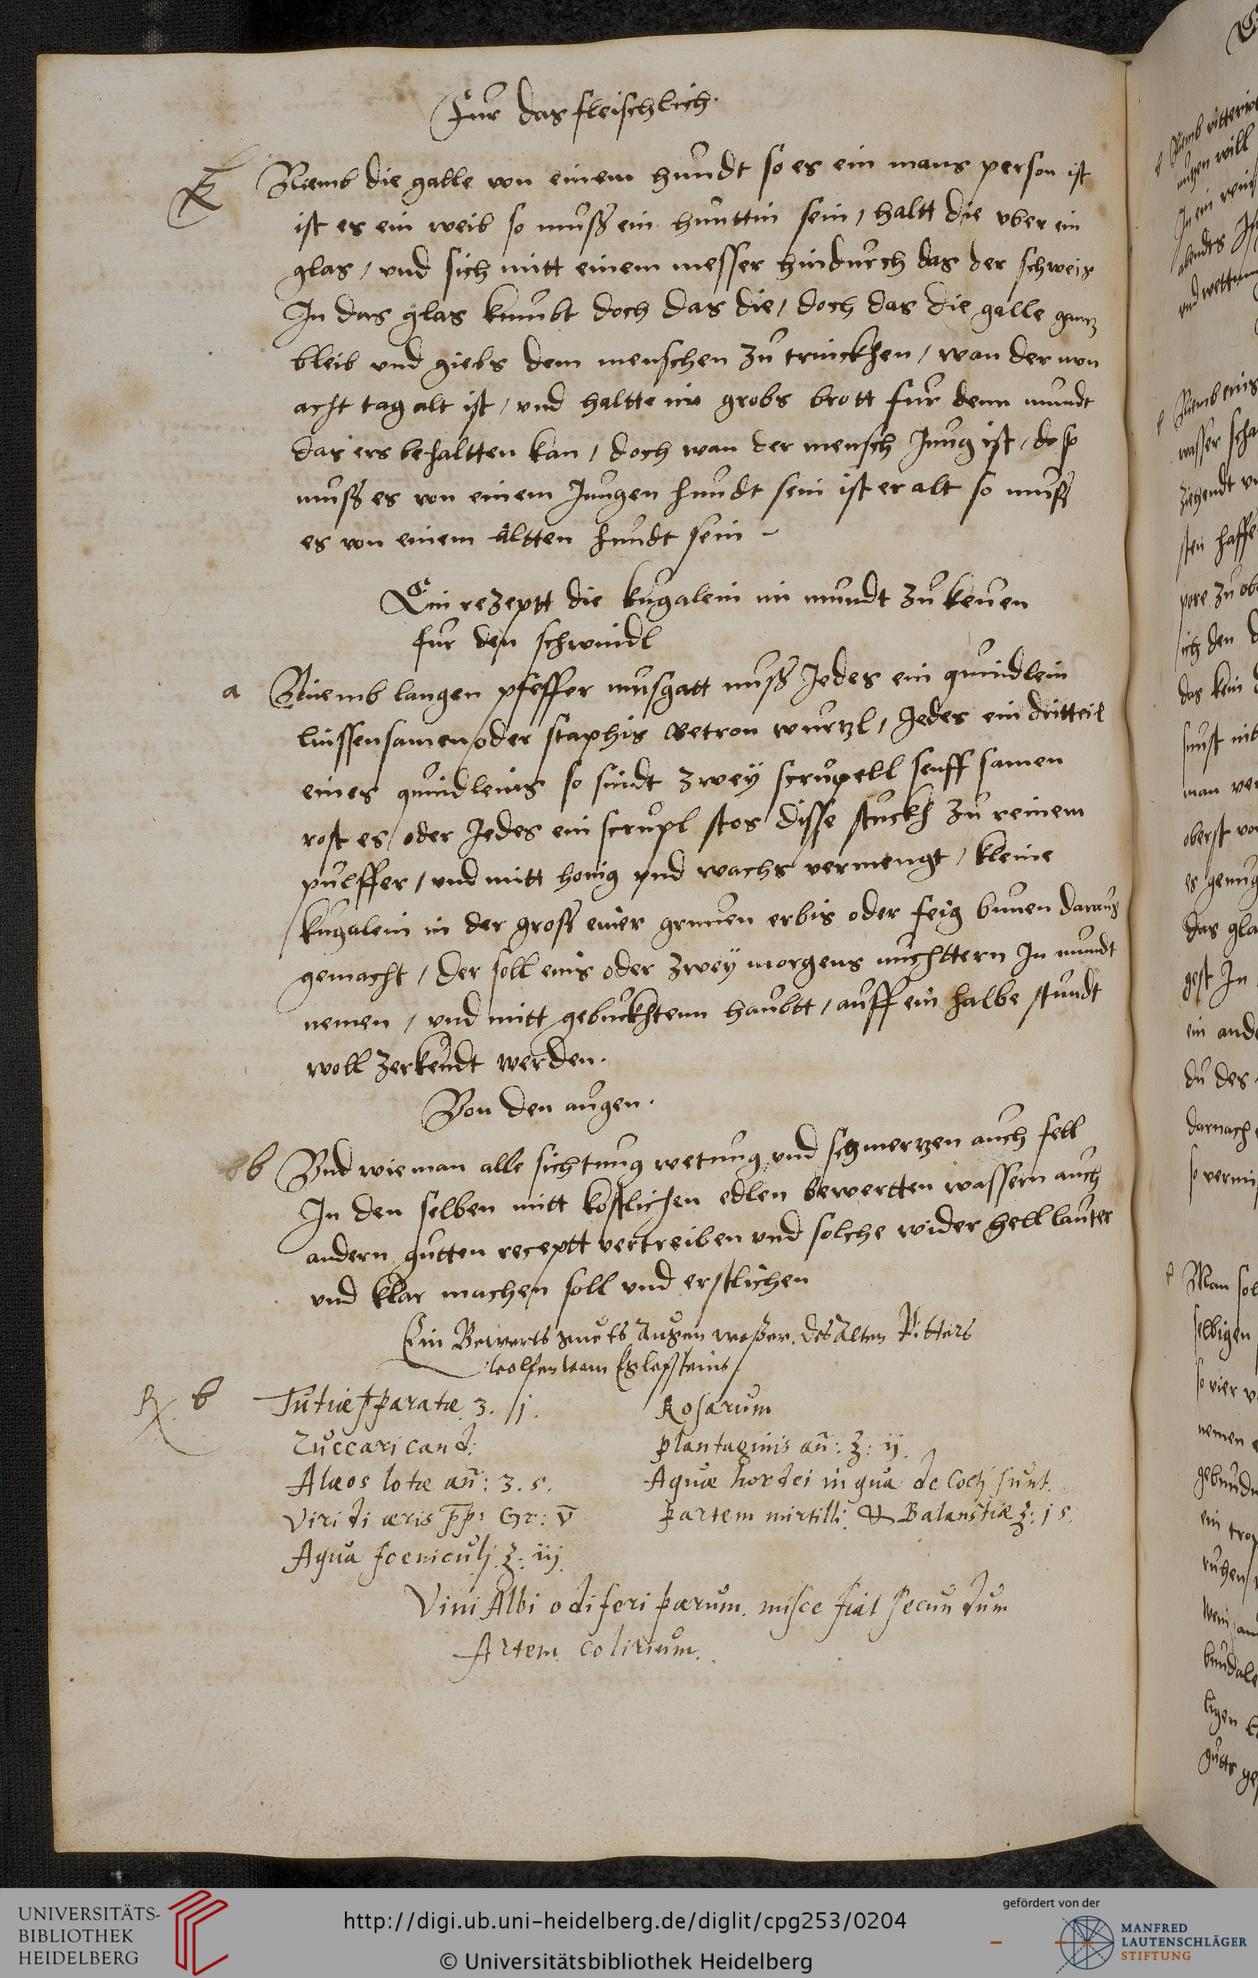 Fur das fleischlich.
Niemb die galle von einem hundt so es ein mans person ist
ist es ein weib so muß ein hunttin sein, haltt die vber ein
glas, vnd stich mitt einem messer hindurch das der schweis
In das glas kumbt doch das die, doch das die galle gantz
bleib vnd giebs dem menschen zu trinckhen, wan der mon
acht tag alt ist, vnd haltte im grobs brott fur denn mundt
das ers behaltten kan, doch wan der mensch Jung ist, so
muß es von einem Jungen hundt sein ist er alt so muß
es von einem altten hundt sein
Ein rezeptt die kugalein im mundt zu keuen
fur den schwindl
a Niemb langen pfeffer musgatt nuß Jedes ein quindlein
linssensamen oder staphis Betron wurtzl, Jedes ein dritteil
eines quindleins so sindt zwey scrupell senff samen
rost es, oder Jedes ein scrupl stos disse stuckh zu reinem
pulffer, vnd mitt honig vnd wachs vermengt, kleine
kugalein in der groß einer grunen erbis oder feig bunen daraus
gemacht, der soll eins oder zwey morgens nuchttern In mundt
nemen, vnd mitt gebuckhtenn haubtt, auff ein halbe stundt
woll zerkeudt werden.
Von den augen.
b Vnd wie man alle sichtung wetung vnd schmertzen auch fell
In den selben mitt kostlichen edlen bewertten wassern auch
andern gutten receptt vertreiben vnd solche wider hell lauter
vnd klar machen soll vnd erstlichen
Ein Bewerts guets Augen waßer. des Alten Ritters
℞ b Tutiæ pparatæ ʒ. j.
Zuccari cand:
Alæos lotæ añ: ʒ. s.
Viridi æris pp: Gr: v
Aqua foeniculj ʒ: iij.
Rosarum
plantaginis añ: ʒ: ij.
Aquæ hordei in qua decoctj sunt.
partem mirtilli. & Balaustiæ ʒ: j s.
Vini Albi odiferi parum. misce fiat secundum
Artem colirium.
UNIVERSITÄTS-
BIBLIOTHEK
HEIDELBERG
http://digi.ub.uni-heidelberg.de/diglit/cpg253/0204
© Universitätsbibliothek Heidelberg
gefördert von der
MANFRED
LAUTENSCHLÄGER
STIFTUNG